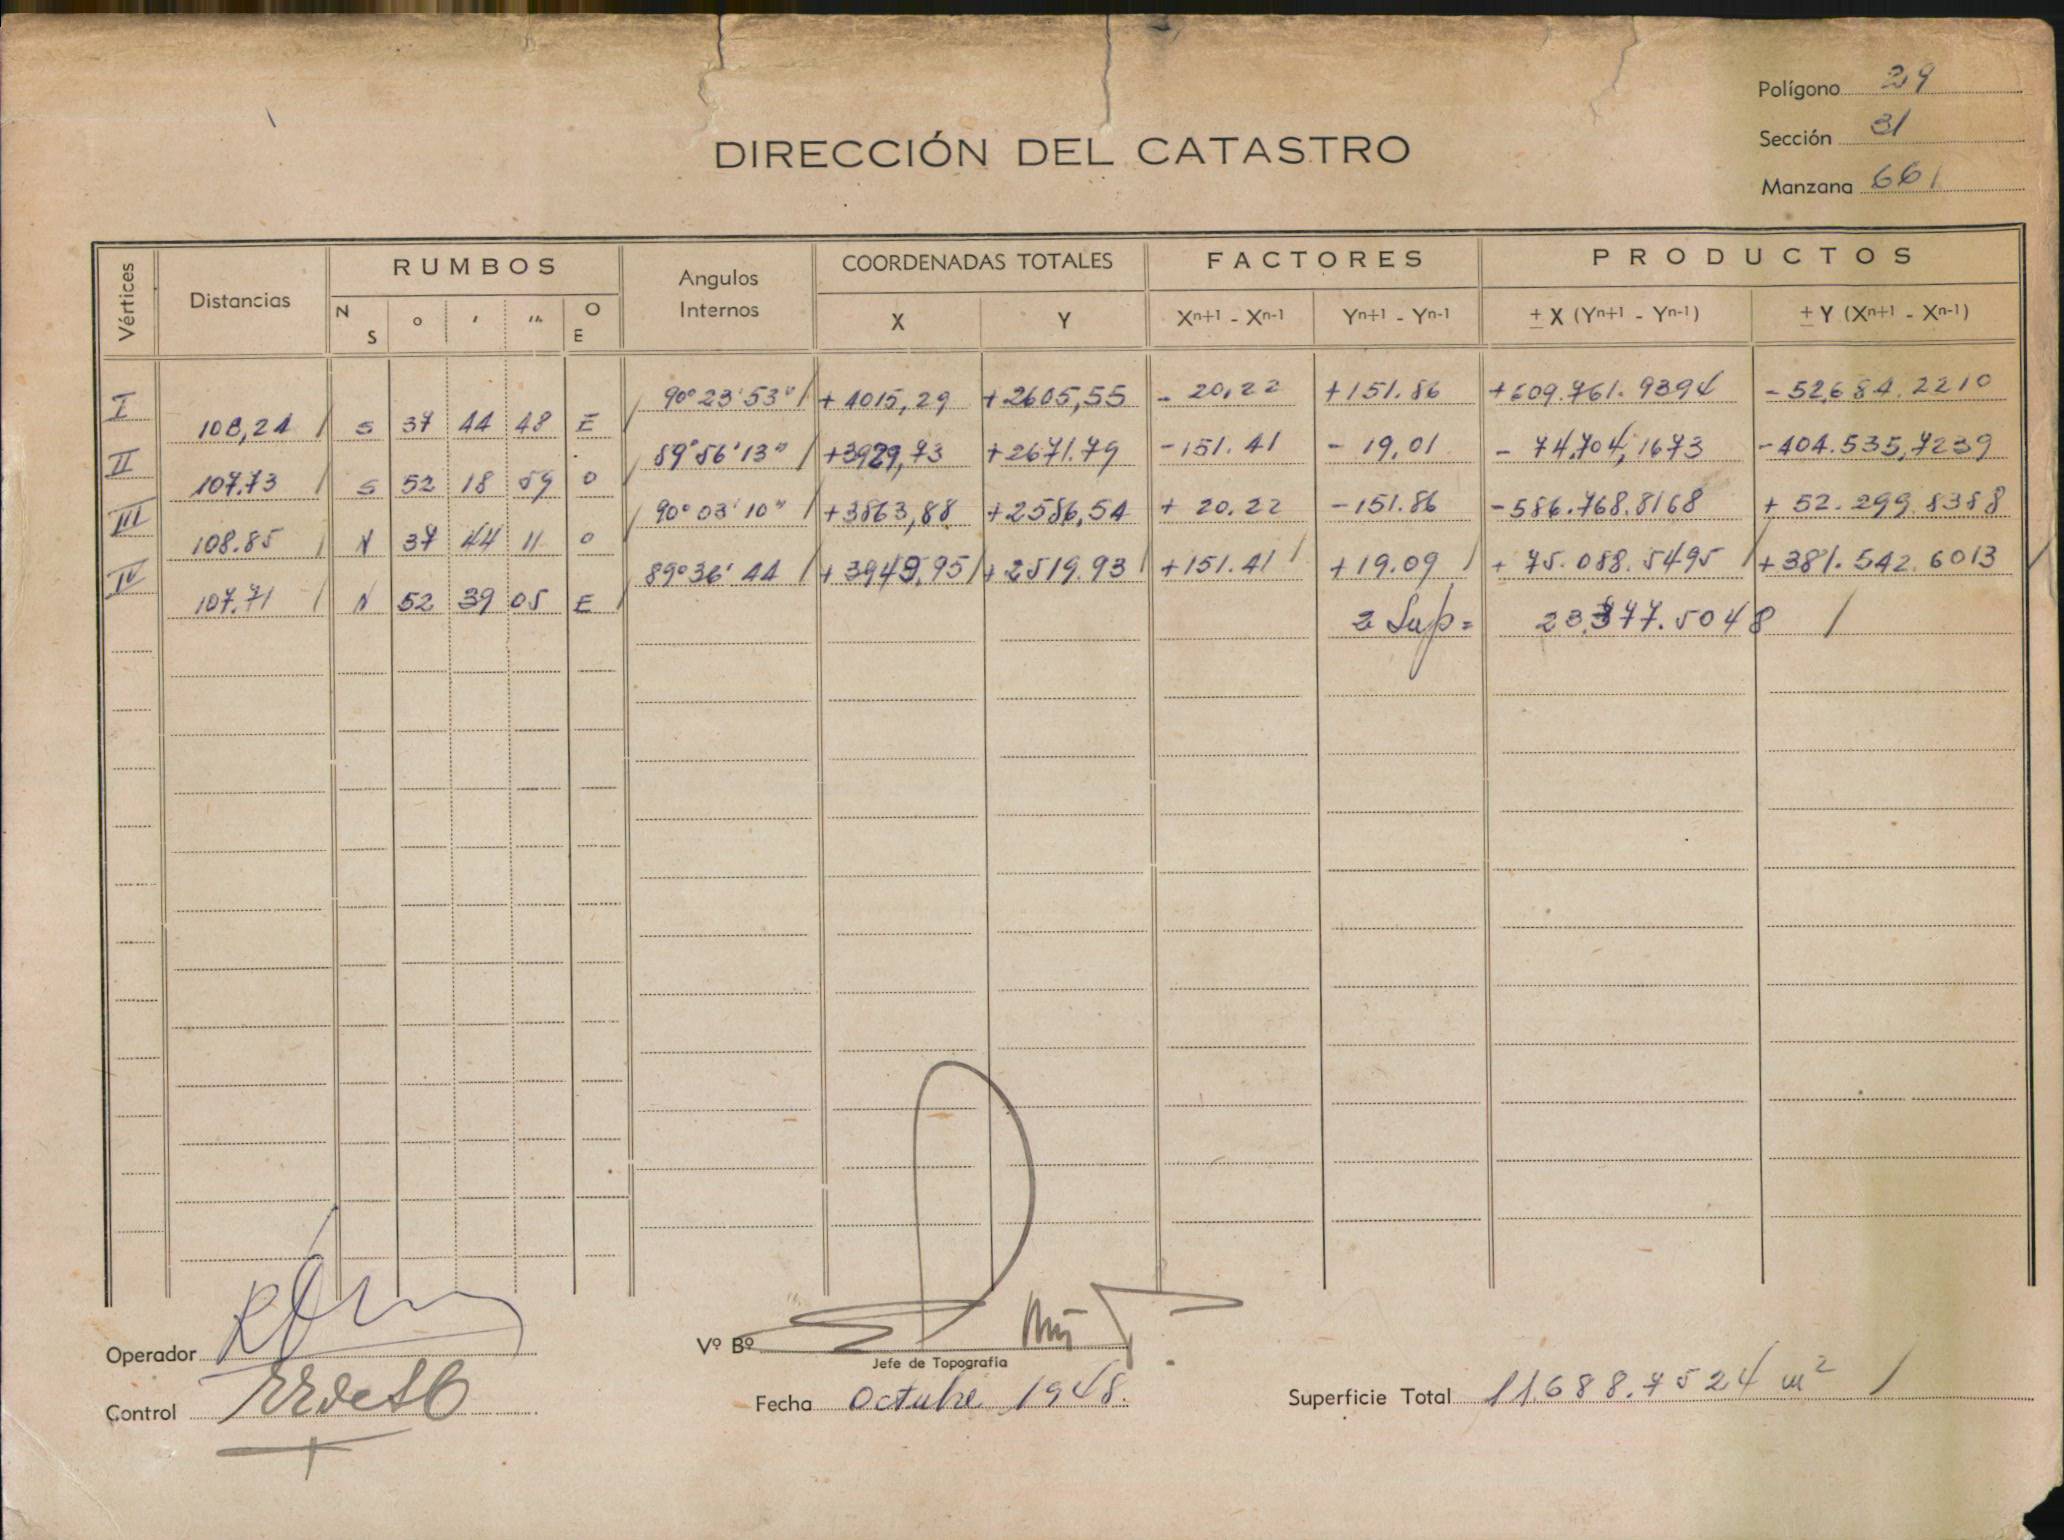 Polígono 29
Sección 31
Manzana 661
DIRECCIÓN DEL CATASTRO
Vértices Distancias RUMBOS Angulos Internos COORDENADAS TOTALES FACTORES PRODUCTOS
N S ° ' " O E X Y Xn+1 - Xn-1 Yn+1 - Yn-1 ± X (Yn+1 - Yn-1) ± Y (Xn+1 - Xn-1)
I 90°23'53" +4015,29 +2605,55 - 20,22 +151.86 +609.761.9394 -52,684.2210
108,24 S 37 44 48 E
II 89°56'13" +3929,73 +2671.79 -151.41 - 19,01 - 74.704,1673 -404.535,7239
107.73 S 52 18 59 O
III 90°03'10" +3863,88 +2586,54 + 20.22 -151.86 -586.768.8168 + 52.299.8388
108.85 N 37 44 11 O
IV 89°36'44 +3949,95 +2519.93 +151.41 +19.09 + 75.088.5495 +381.542.6013
107.71 N 52 39 05 E
2 Sup= 23.377.5048
Operador
Control
Vº Bº
Jefe de Topografía
Fecha Octubre 1948.
Superficie Total 11.688.7524 m²